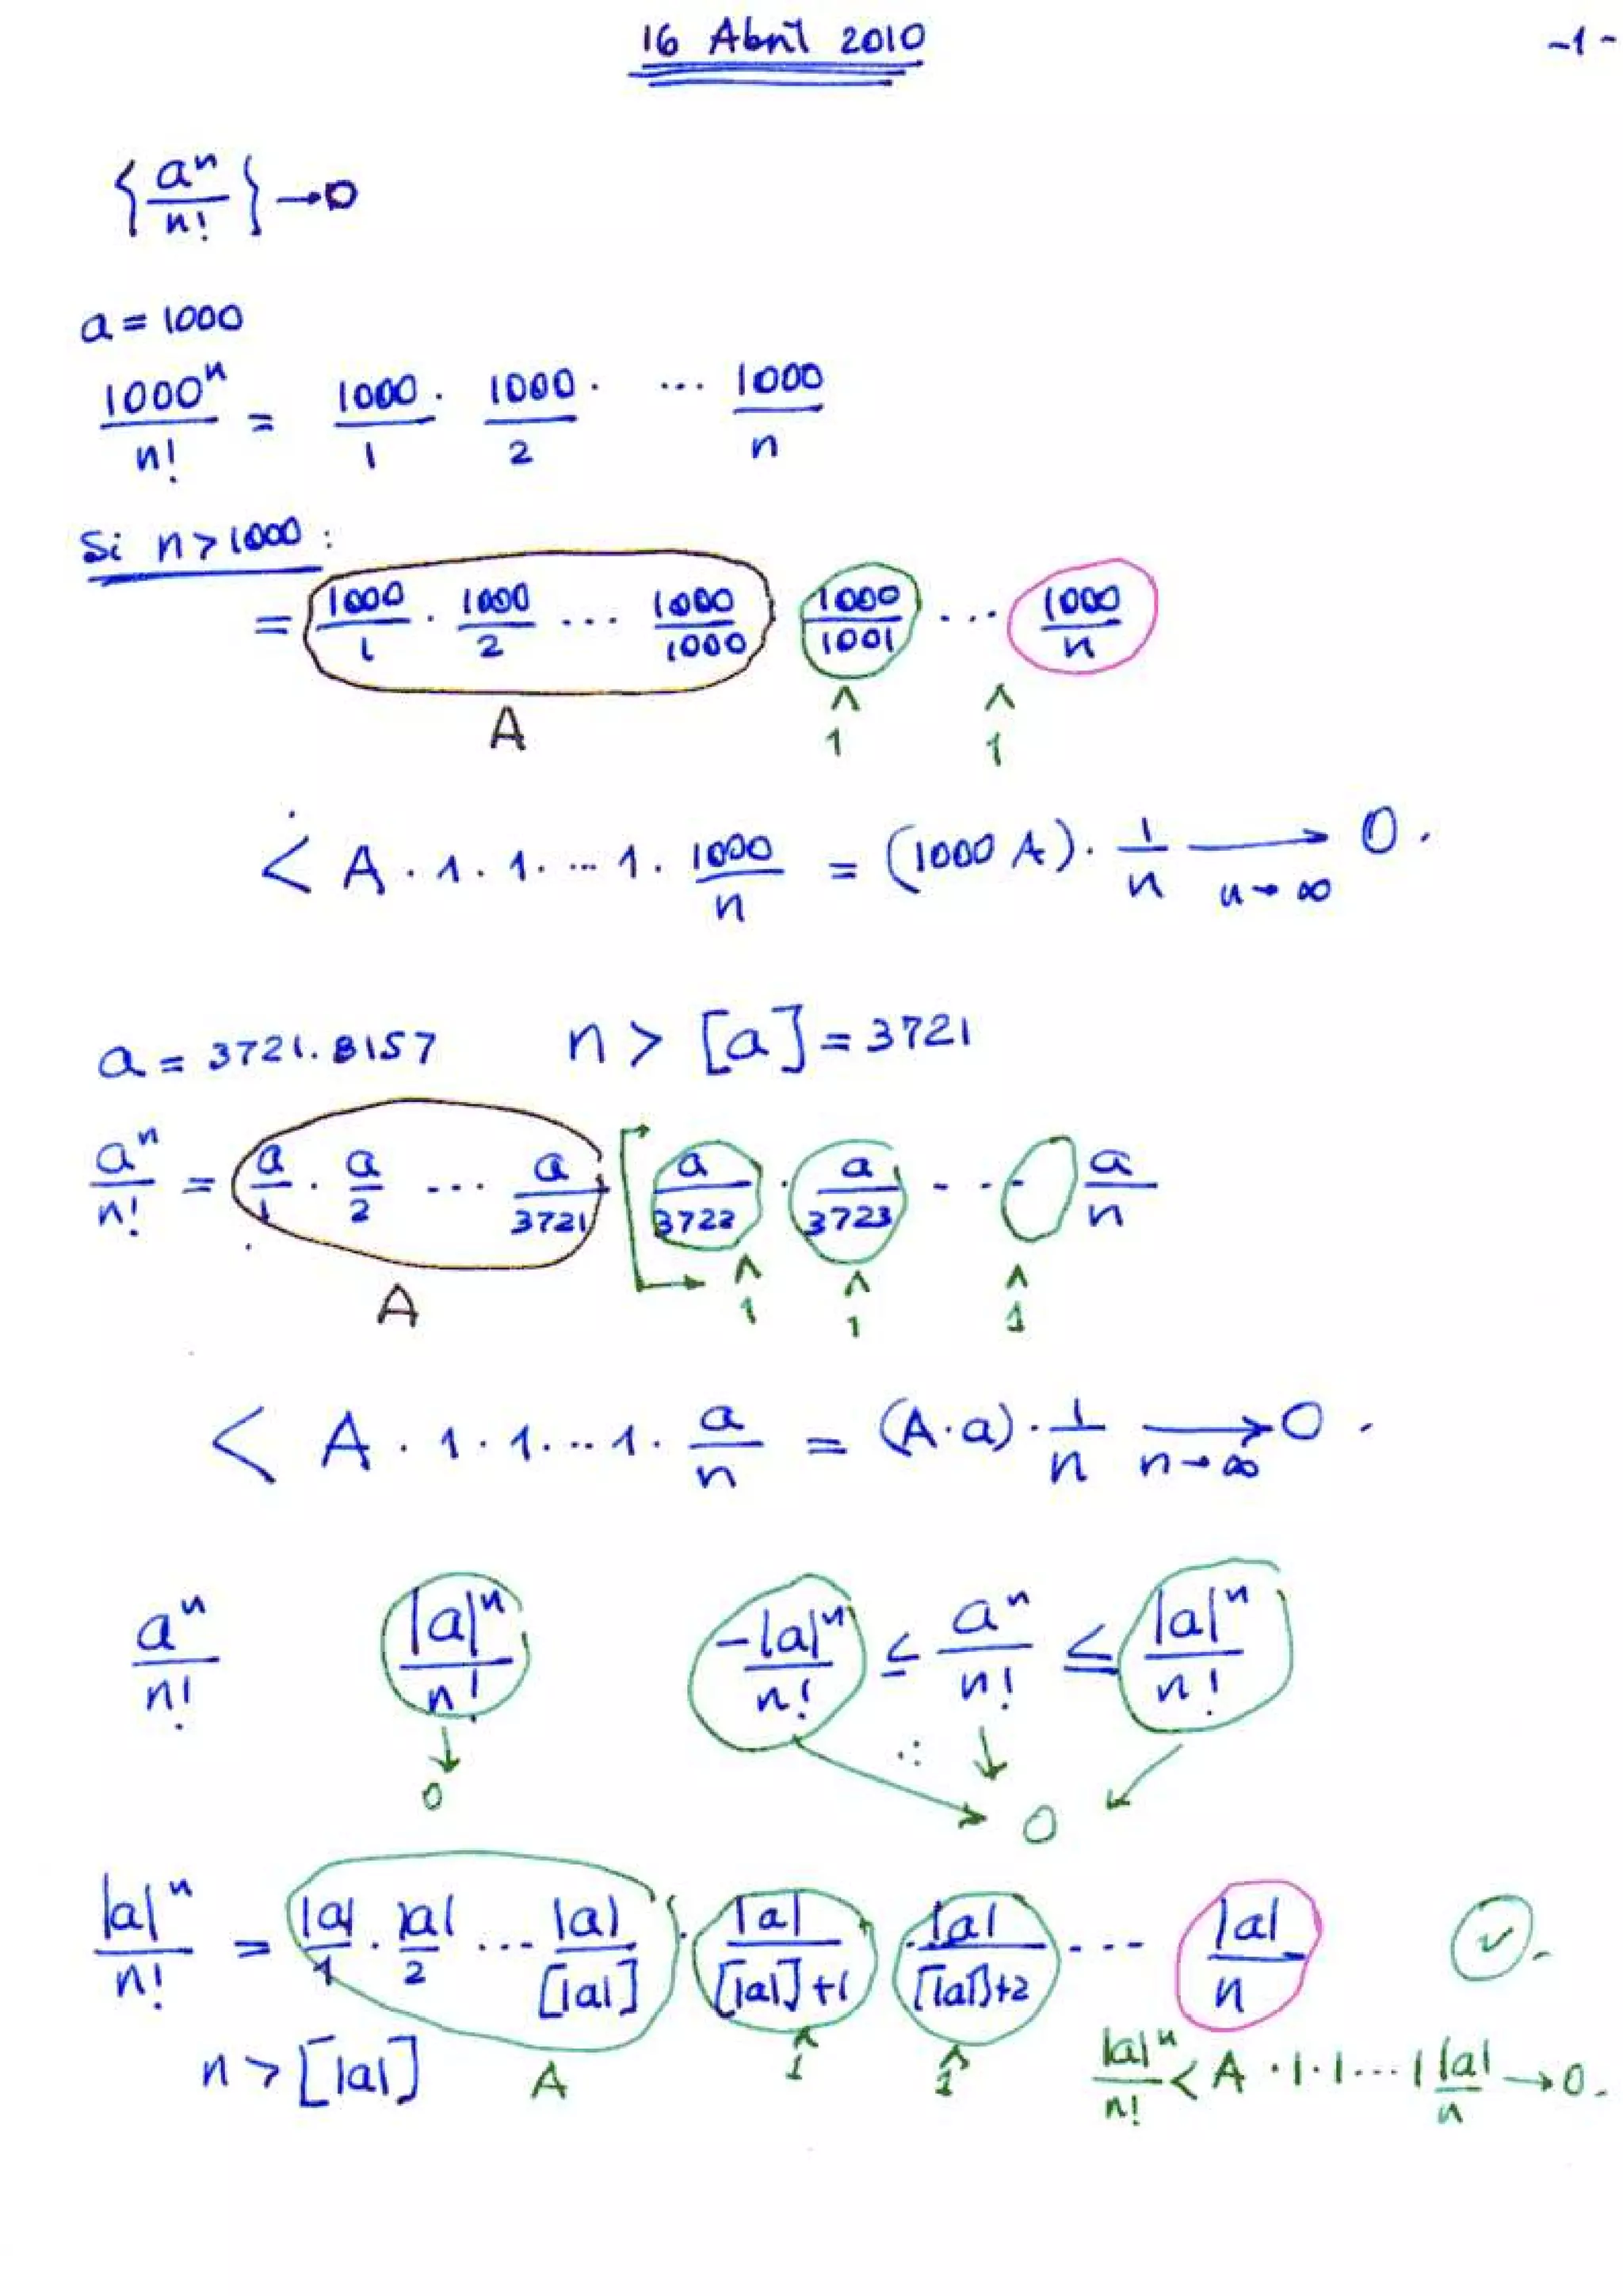 16 Abril 2010
-1-
{a^n/n!} → 0
a = 1000
1000^n/n! = 1000/1 · 1000/2 · ... 1000/n
Si n > 1000 :
= 1000/1 · 1000/2 ... 1000/1000 1000/1001 ... 1000/n
A ^ 1 ^ 1
< A · 1 · 1 · ... 1 · 1000/n = (1000 A) · 1/n → 0 .
n → ∞
a = 3721.8157 n > [a] = 3721
a^n/n! = a/1 · a/2 ... a/3721 · a/3722 · a/3723 ... a/n
A ^ 1 ^ 1 ^ 1
< A · 1 · 1 · ... 1 · a/n = (A · a) · 1/n → 0 .
n → ∞
a^n/n! |a|^n/n! -|a|^n/n! ≤ a^n/n! ≤ |a|^n/n!
↓ ∴ ↓
0 0
|a|^n/n! = |a|/1 · |a|/2 ... |a|/[|a|] · |a|/([|a|]+1) · |a|/([|a|]+2) ... |a|/n ✓.
n > [|a|] A ^ 1 ^ 1 |a|^n/n! < A · 1 · 1 ... 1 |a|/n → 0.